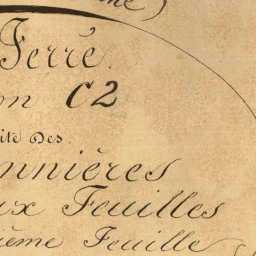 Ferré.
on C2
ite Des
onnières
ux Feuilles
ième Feuille